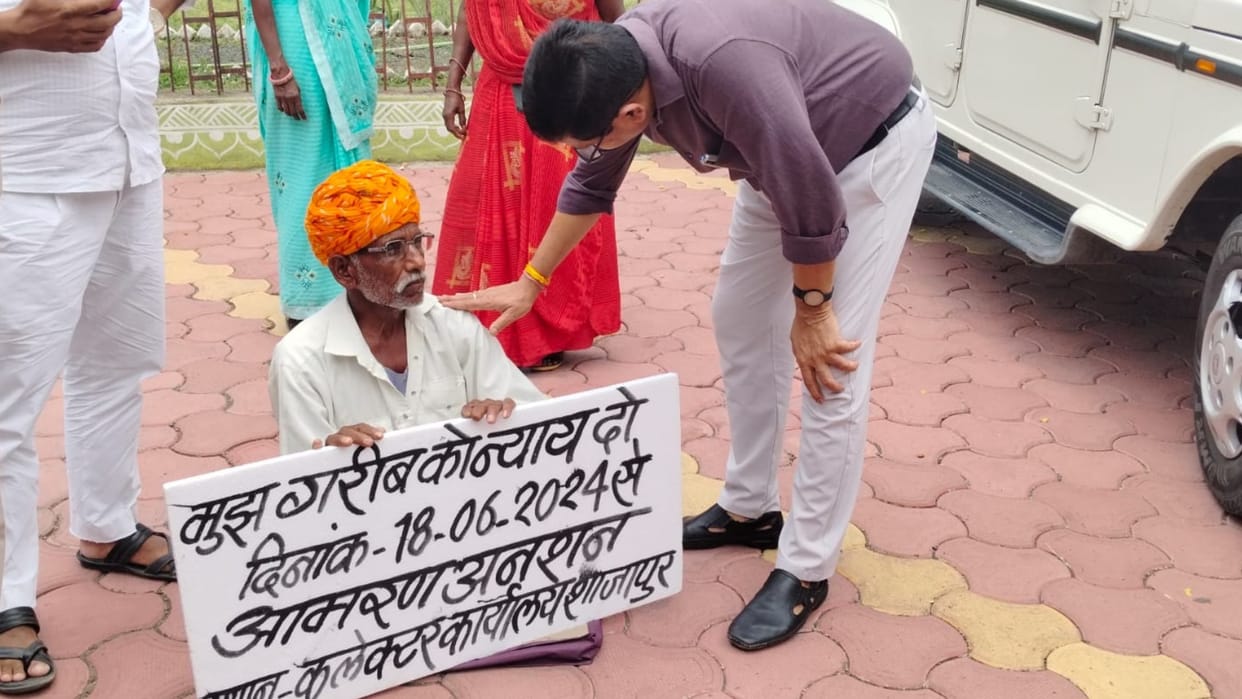 मुझ गरीब को न्याय दो
दिनांक - 18-06-2024 से
आमरण अनशन
कलेक्टर कार्यालय शाजापुर